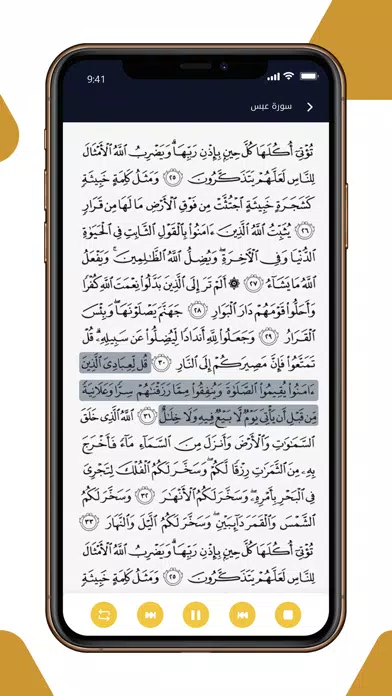 9:41
سورة عبس
تُؤْتِىٓ أُكُلَهَا كُلَّ حِينٍۭ بِإِذْنِ رَبِّهَا ۗ وَيَضْرِبُ ٱللَّهُ ٱلْأَمْثَالَ
لِلنَّاسِ لَعَلَّهُمْ يَتَذَكَّرُونَ ٢٥ وَمَثَلُ كَلِمَةٍ خَبِيثَةٍ
كَشَجَرَةٍ خَبِيثَةٍ ٱجْتُثَّتْ مِن فَوْقِ ٱلْأَرْضِ مَا لَهَا مِن قَرَارٍ
٢٦ يُثَبِّتُ ٱللَّهُ ٱلَّذِينَ ءَامَنُوا۟ بِٱلْقَوْلِ ٱلثَّابِتِ فِى ٱلْحَيَوٰةِ
ٱلدُّنْيَا وَفِى ٱلْءَاخِرَةِ ۖ وَيُضِلُّ ٱللَّهُ ٱلظَّـٰلِمِينَ ۚ وَيَفْعَلُ
ٱللَّهُ مَا يَشَآءُ ٢٧ ۞ أَلَمْ تَرَ إِلَى ٱلَّذِينَ بَدَّلُوا۟ نِعْمَتَ ٱللَّهِ كُفْرًا
وَأَحَلُّوا۟ قَوْمَهُمْ دَارَ ٱلْبَوَارِ ٢٨ جَهَنَّمَ يَصْلَوْنَهَا ۖ وَبِئْسَ
ٱلْقَرَارُ ٢٩ وَجَعَلُوا۟ لِلَّهِ أَندَادًا لِّيُضِلُّوا۟ عَن سَبِيلِهِۦ ۗ قُلْ
تَمَتَّعُوا۟ فَإِنَّ مَصِيرَكُمْ إِلَى ٱلنَّارِ ٣٠ قُل لِّعِبَادِىَ ٱلَّذِينَ
ءَامَنُوا۟ يُقِيمُوا۟ ٱلصَّلَوٰةَ وَيُنفِقُوا۟ مِمَّا رَزَقْنَـٰهُمْ سِرًّا وَعَلَانِيَةً
مِّن قَبْلِ أَن يَأْتِىَ يَوْمٌ لَّا بَيْعٌ فِيهِ وَلَا خِلَـٰلٌ ٣١ ٱللَّهُ ٱلَّذِى خَلَقَ
ٱلسَّمَـٰوَٰتِ وَٱلْأَرْضَ وَأَنزَلَ مِنَ ٱلسَّمَآءِ مَآءً فَأَخْرَجَ
بِهِۦ مِنَ ٱلثَّمَرَٰتِ رِزْقًا لَّكُمْ ۖ وَسَخَّرَ لَكُمُ ٱلْفُلْكَ لِتَجْرِىَ
فِى ٱلْبَحْرِ بِأَمْرِهِۦ ۖ وَسَخَّرَ لَكُمُ ٱلْأَنْهَـٰرَ ٣٢ وَسَخَّرَ لَكُمُ
ٱلشَّمْسَ وَٱلْقَمَرَ دَآئِبَيْنِ ۖ وَسَخَّرَ لَكُمُ ٱلَّيْلَ وَٱلنَّهَارَ ٣٣
تُؤْتِىٓ أُكُلَهَا كُلَّ حِينٍۭ بِإِذْنِ رَبِّهَا ۗ وَيَضْرِبُ ٱللَّهُ ٱلْأَمْثَالَ
لِلنَّاسِ لَعَلَّهُمْ يَتَذَكَّرُونَ ٢٥ وَمَثَلُ كَلِمَةٍ خَبِيثَةٍ